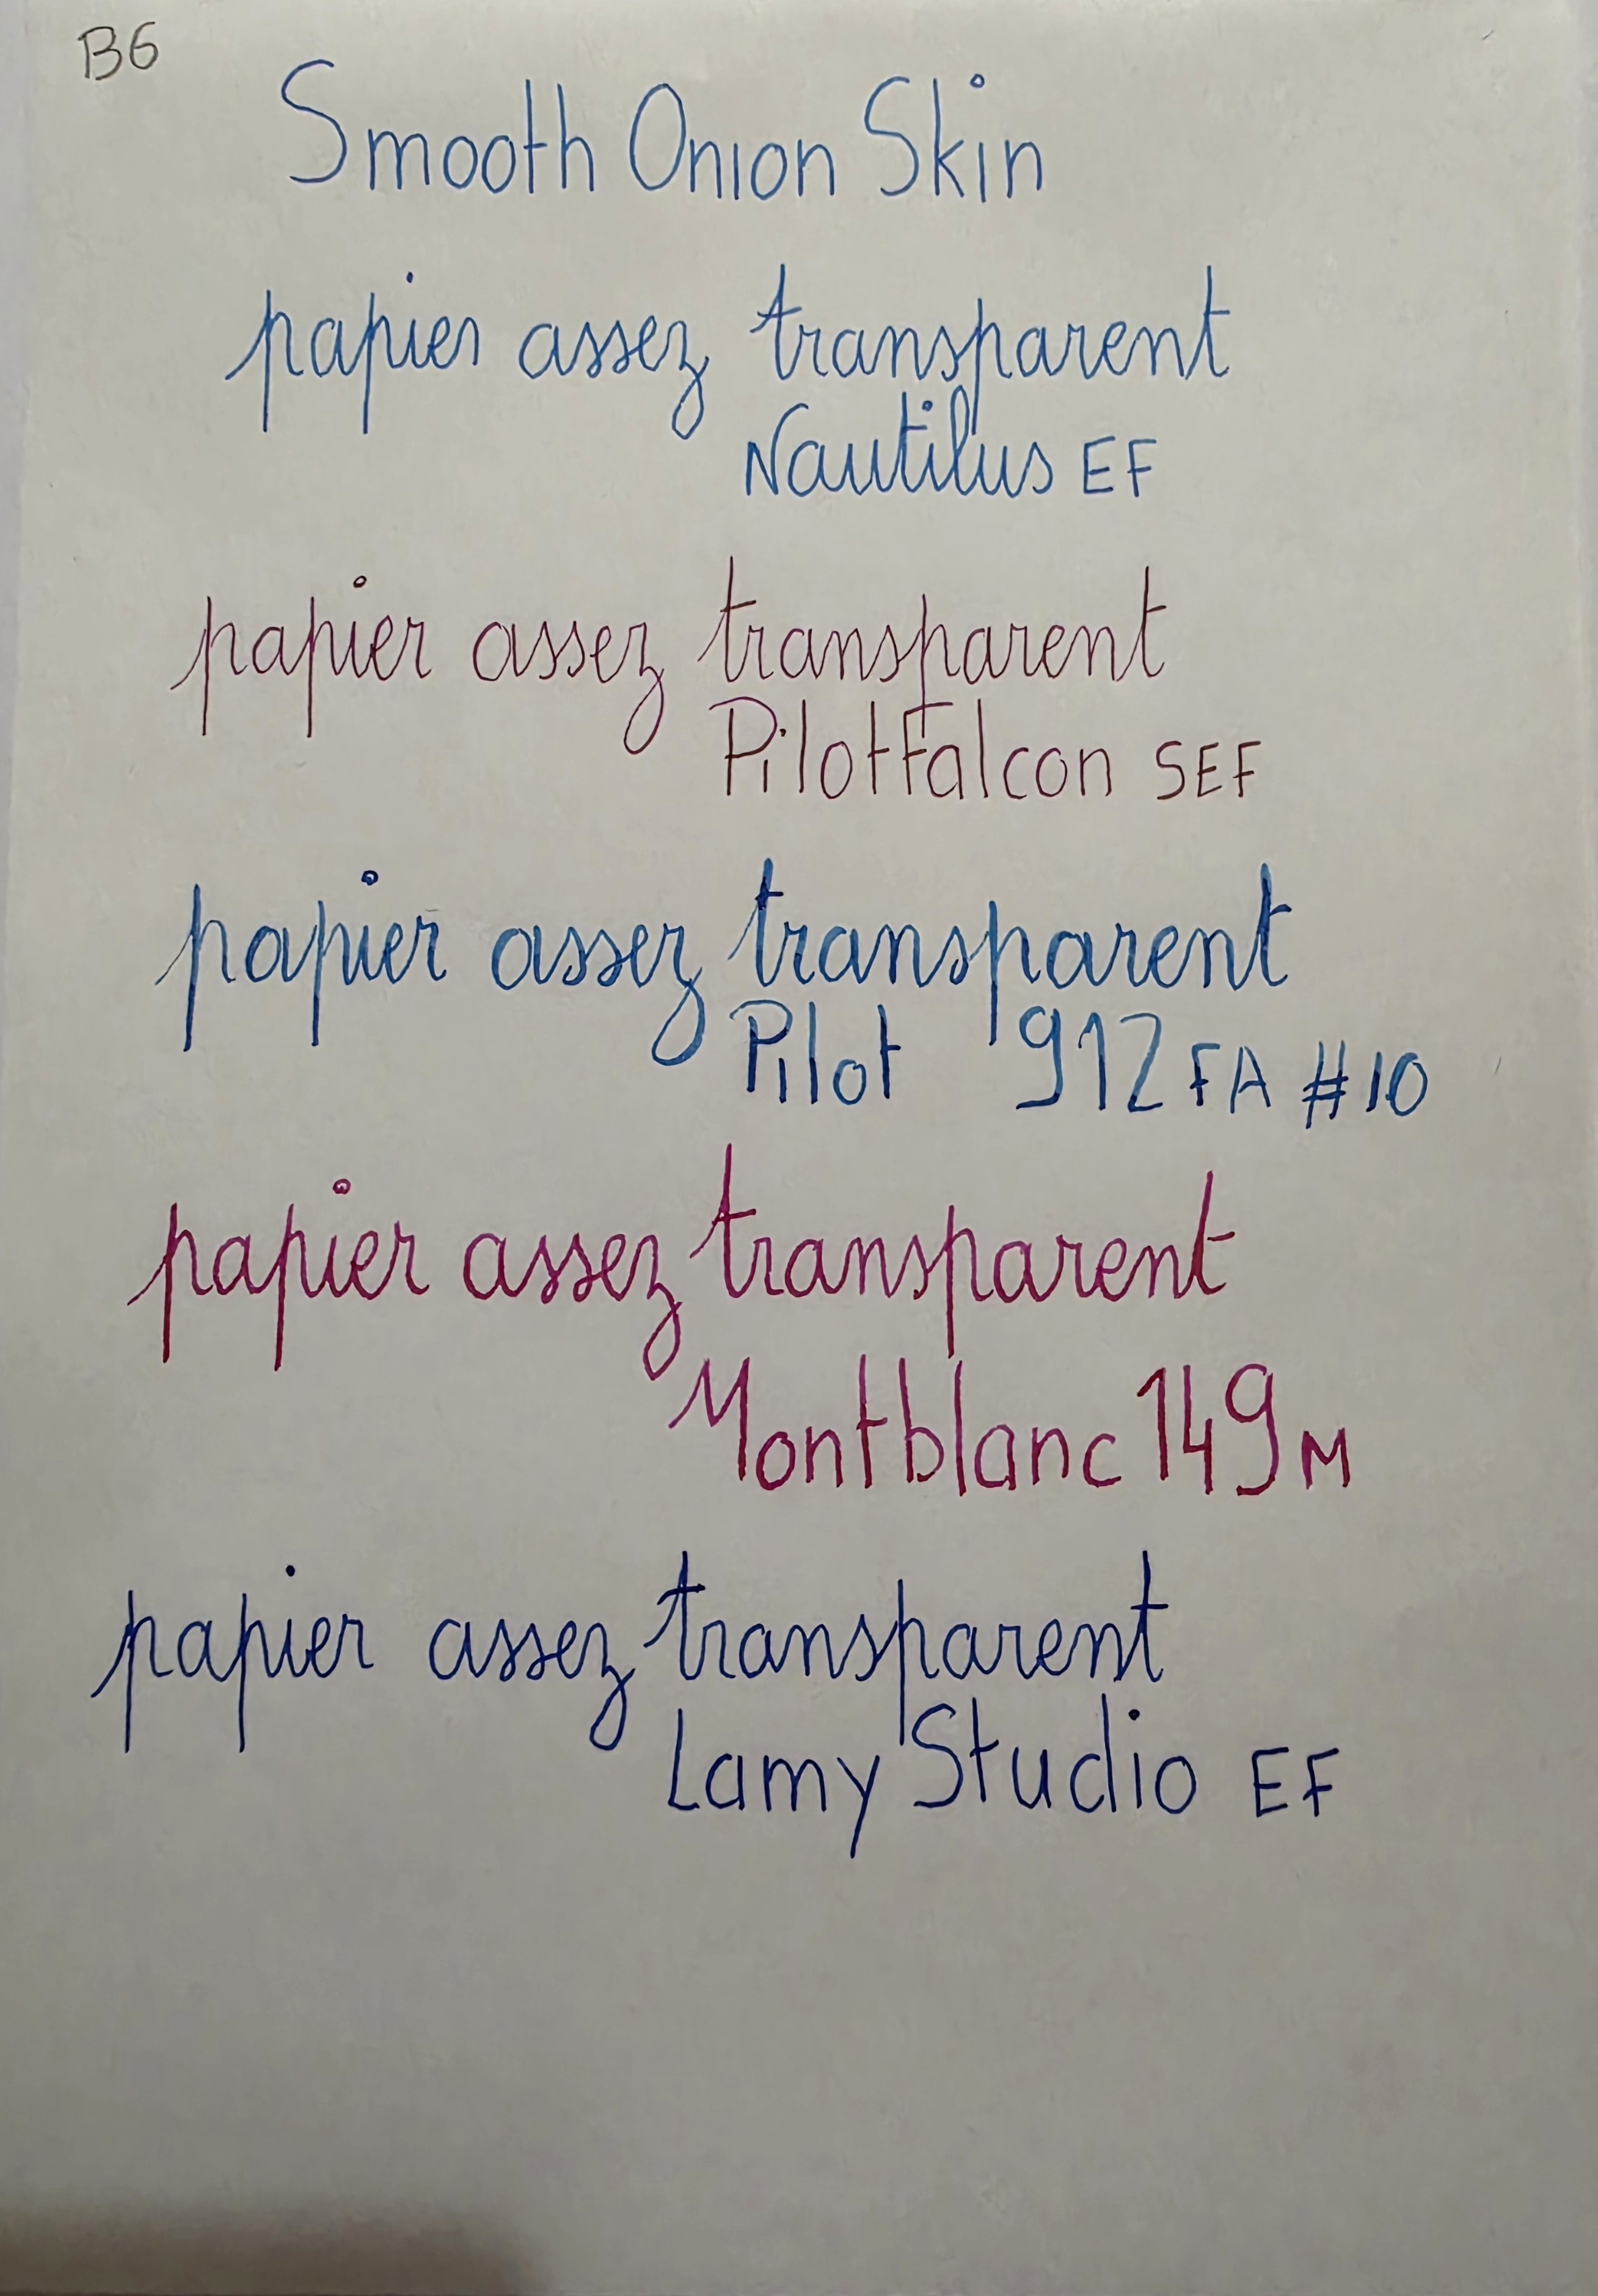 B6
Smooth Onion Skin
papier assez transparent
Nautilus EF
papier assez transparent
Pilot Falcon SEF
papier assez transparent
Pilot 912 FA #10
papier assez transparent
Montblanc 149 M
papier assez transparent
Lamy Studio EF